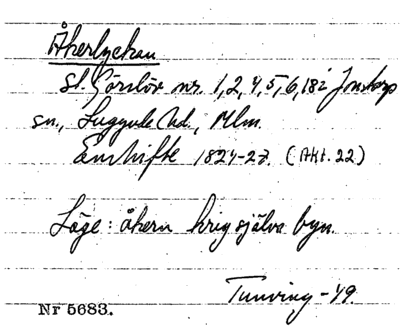 Åkerlyckan
St. Görslöv nr. 1, 2, 4, 5, 6, 18 i
sn., Luggude hd., Mlm.
Enskifte 1824-27. (Akt. 22)
Läge: åkern kring själva byn.
Tunving -49.
Nr 5683.